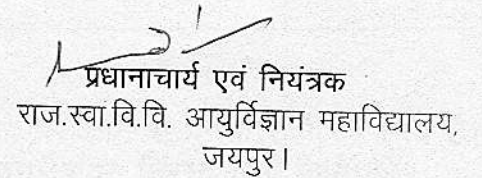 प्रधानाचार्य एवं नियंत्रक
राज.स्वा.वि.वि. आयुर्विज्ञान महाविद्यालय,
जयपुर।